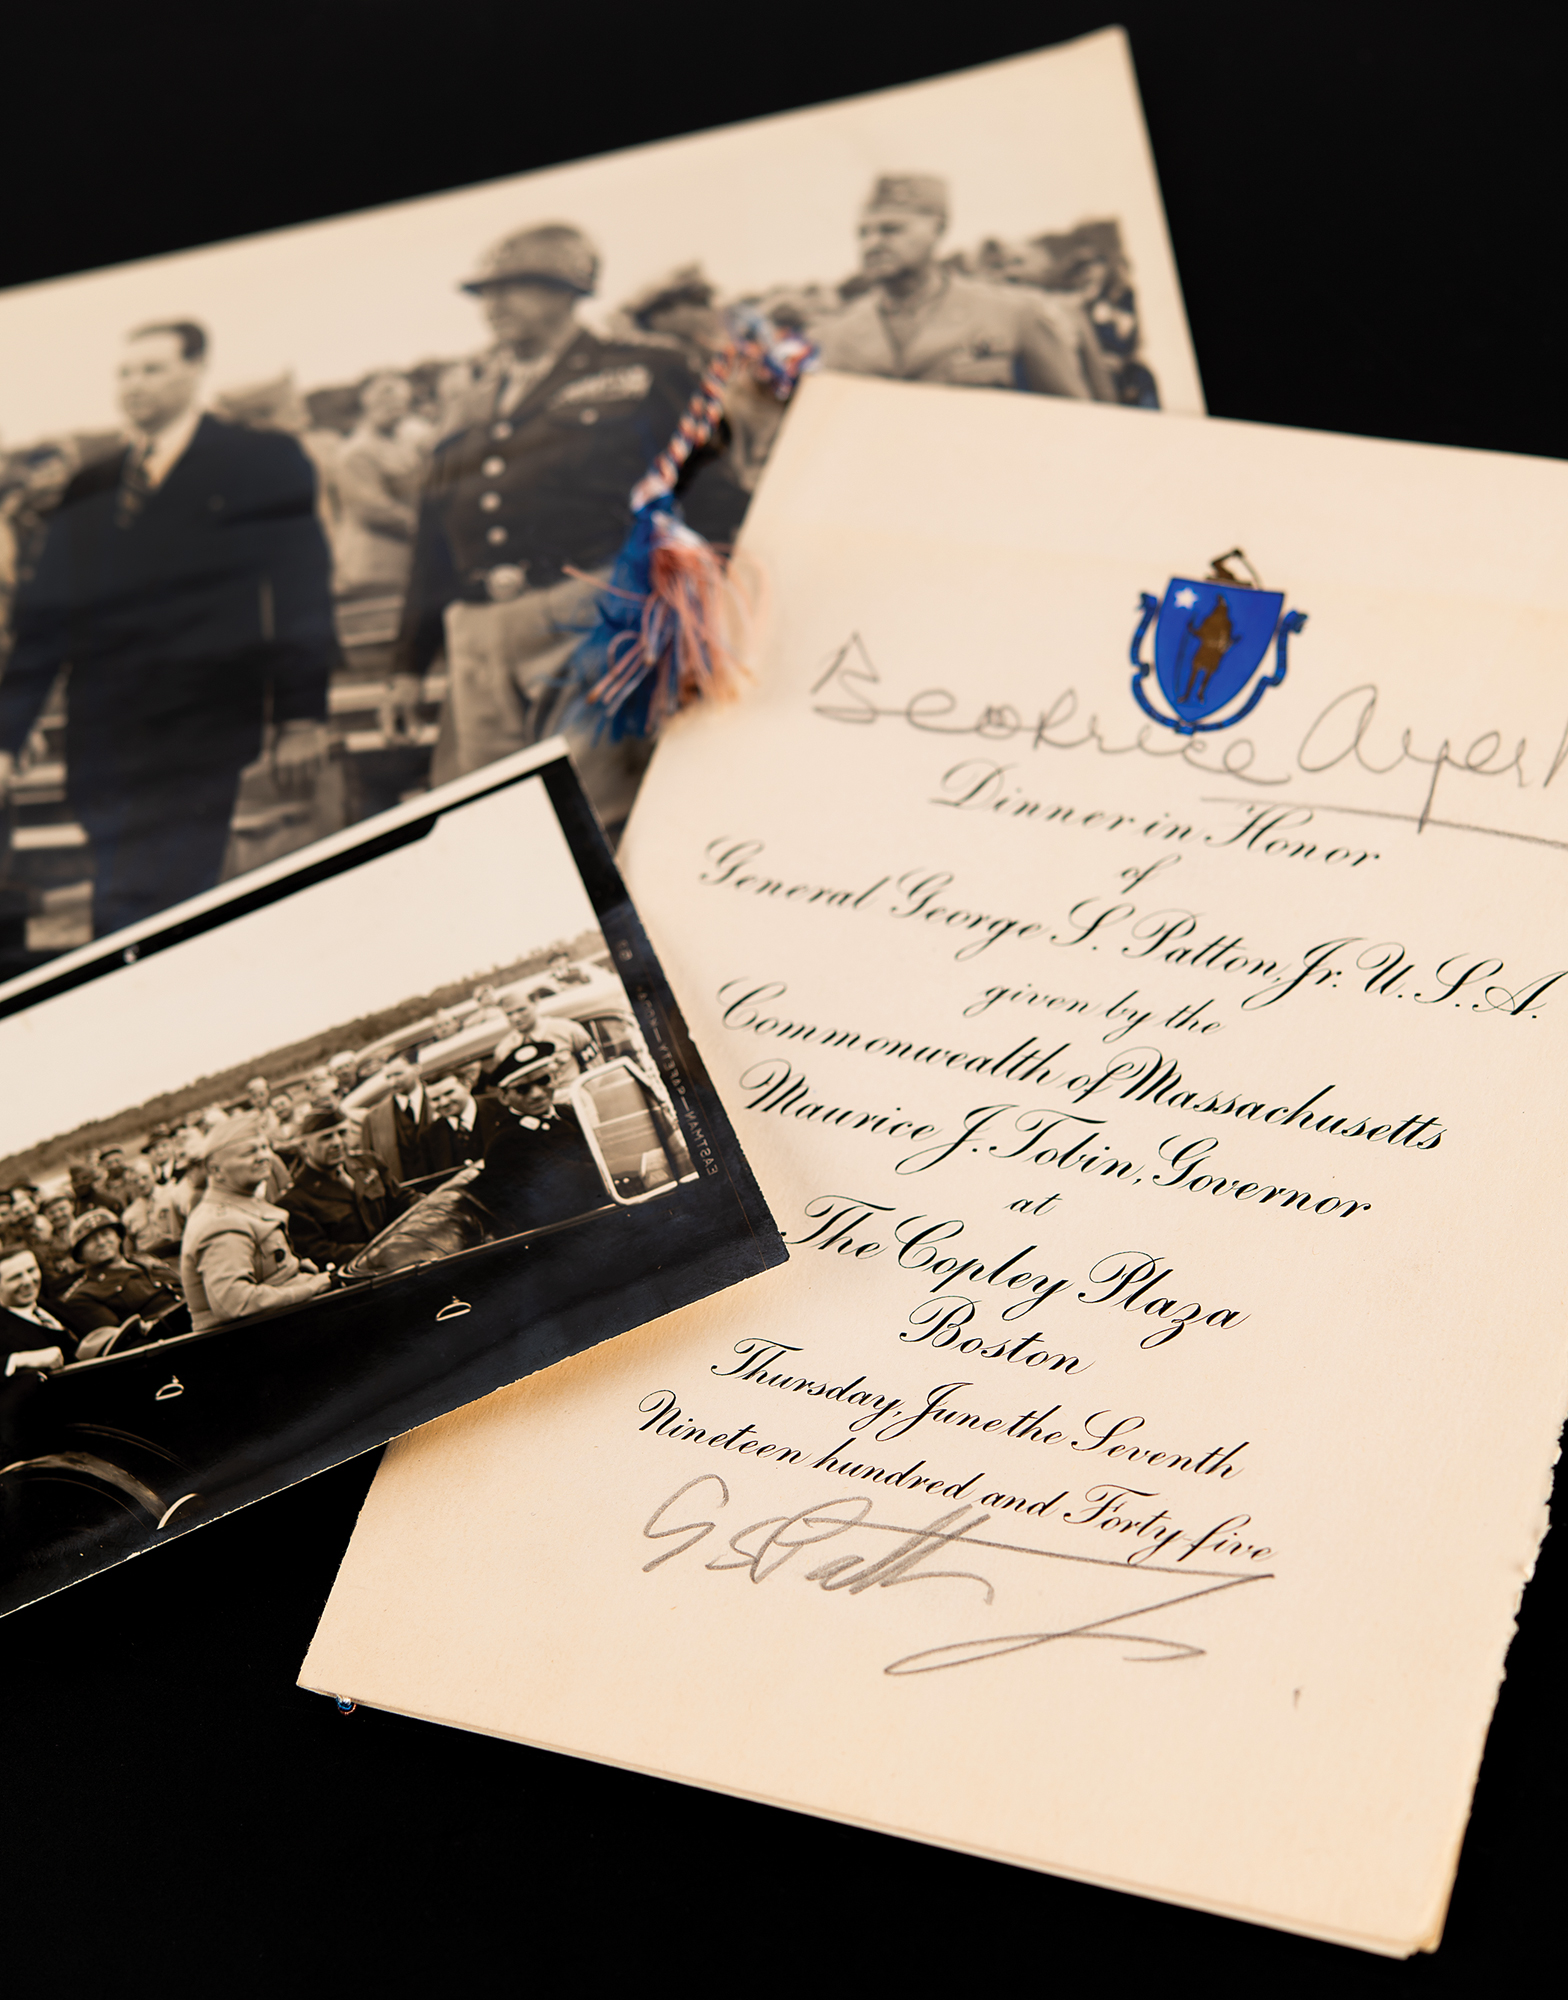 Beatrice Ayer
Dinner in Honor
of
General George S. Patton, Jr. U.S.A.
given by the
Commonwealth of Massachusetts
Maurice J. Tobin, Governor
at
The Copley Plaza
Boston
Thursday, June the Seventh
Nineteen hundred and Forty-five
G S Patton
EASTMAN—SAFETY—KODAK